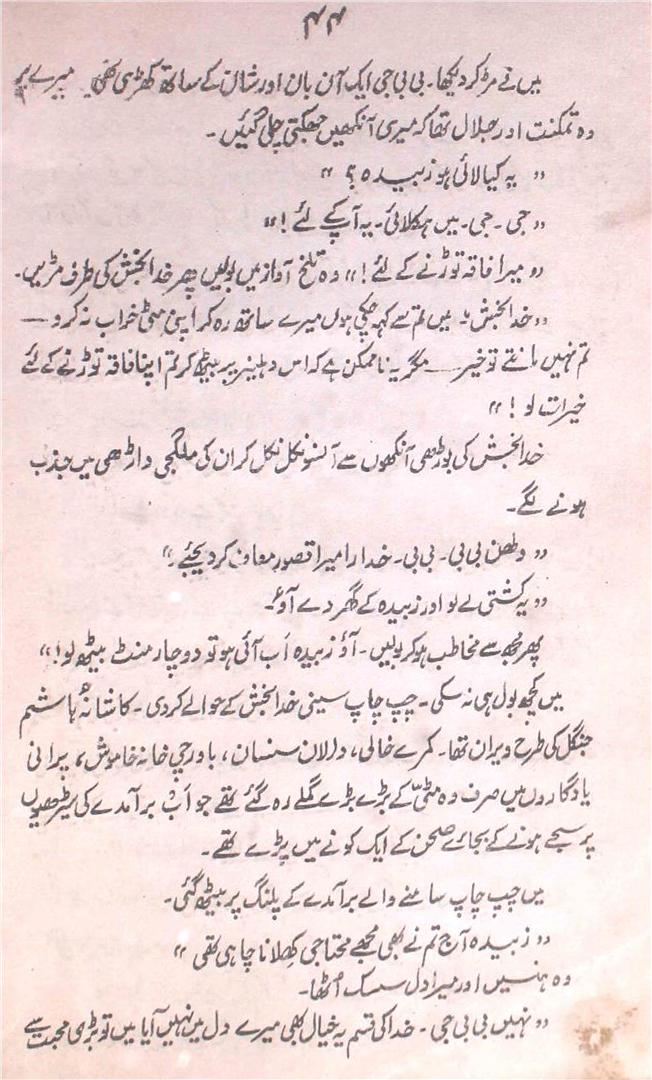 ۴۴
میں نے مڑ کر دیکھا۔ بی بی جی ایک آن بان اور شان کے ساتھ کھڑی تھیں میرے پر
وہ تمکنت اور جلال تھا کہ میری آنکھیں جھکتی چلی گئیں۔
” یہ کیا لائی ہو زبیدہ ؟ “
” جی ۔ جی ۔ میں ہکلائی ۔ یہ آپ کے لئے ! “
” میرا فاقہ توڑنے کے لئے ! “ وہ تلخ آواز میں بولیں پھر خدا بخش کی طرف مڑیں۔
” خدا بخش ! میں تم سے کہہ چکی ہوں میرے ساتھ رہ کر اپنی مٹی خراب نہ کرو —
تم نہیں مانتے تو خیر — مگر یہ ناممکن ہے کہ اس دہلیز پر بیٹھ کر تم اپنا فاقہ توڑنے کے لئے
خیرات لو ! “
خدا بخش کی بوڑھی آنکھوں سے آنسو نکل نکل کر ان کی ملگجی داڑھی میں جذب
ہونے لگے۔
” دلھن بی بی ۔ بی بی ۔ خدارا میرا قصور معاف کر دیجئے “
” یہ کشتی لے لو اور زبیدہ کے گھر دے آؤ ۔
پھر مجھ سے مخاطب ہو کر بولیں ۔ آؤ زبیدہ اَب آئی ہو تو دو چار منٹ بیٹھ لو ! “
میں کچھ بول ہی نہ سکی ۔ چپ چاپ سینی خدا بخش کے حوالے کر دی ۔ کاشانۂ ہاشم
جنگل کی طرح ویران تھا۔ کمرے خالی ، دالان سنسان ، باورچی خانہ خاموش ، پرانی
یادگاروں میں صرف وہ مٹی کے بڑے بڑے گملے رہ گئے تھے جو اَب برآمدے کی سیڑھیوں
پر سجے ہونے کے بجائے صحن کے ایک کونے میں پڑے تھے۔
میں چپ چاپ سامنے والے برآمدے کے پلنگ پر بیٹھ گئی۔
” زبیدہ آج تم نے بھی مجھے محتاجی کھلانا چاہی تھی “
وہ ہنسیں اور میرا دل سسک اُٹھا۔
” نہیں بی بی جی ۔ خدا کی قسم یہ خیال بھی میرے دل میں نہیں آیا میں تو بڑی محبت سے